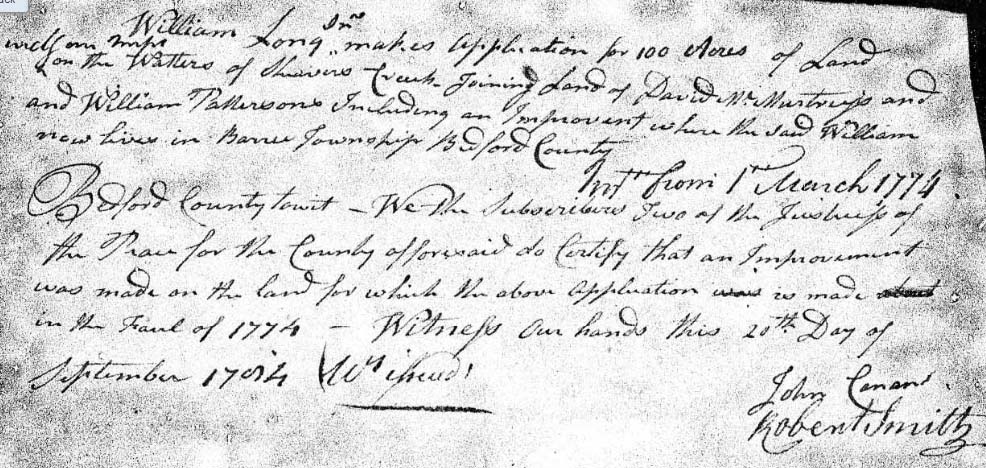 William Long Snr makes Application for 100 Acres of Land
on the Watters of Shavers Creek Joining Land of David McMurtreys and
and William Pattersons Including an Improvent where the said William
now lives in Barree Township Bedford County
Intt from 1st March 1774
Bedford County towit – We the Subscribers Two of the Justices of
the Peace for the County afforesaid do Certify that an Improvement
was made on the land for which the above Application was is made about
in the Faul of 1774 – Witness Our hands this 20th Day of
September 1784 Wt issued
John Canan
Robert Smith